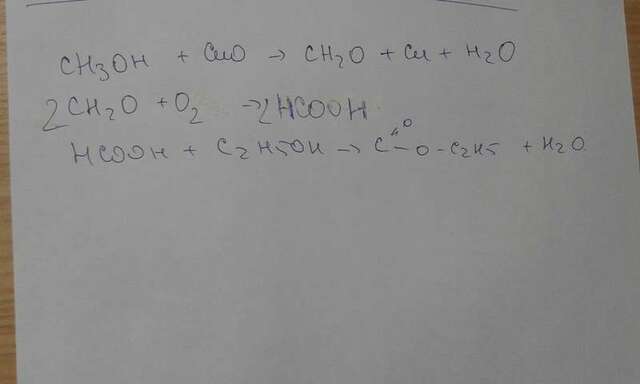 CH3OH + CuO → CH2O + Cu + H2O
2CH2O + O2 → 2HCOOH
HCOOH + C2H5OH → C=O-O-C2H5 + H2O